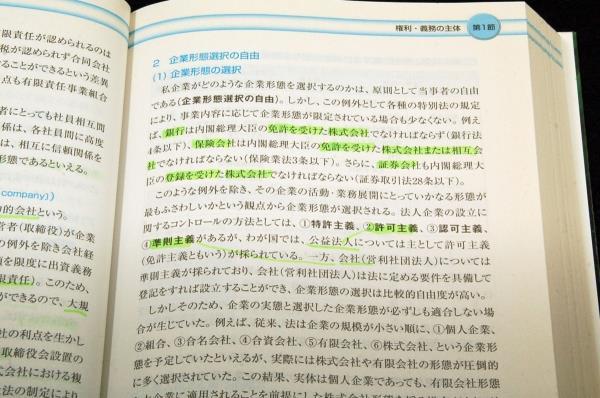 責任が認められるのは
税が認められず合同会社
ことができるという差異
点も有限責任事業組合
者にとっても社員相互間
係は、各社員間に高度
は、相互に信頼関係を
形態であるといえる。
company))
的会社という。
営者(取締役)が企業
の例外を除き会社経
額を限度に出資義務
責任)。このため、
ができるので、大規
社の利点を生かし
取締役会設置の
社における複
法の制定により
権利・義務の主体 第1節
2 企業形態選択の自由
(1) 企業形態の選択
私企業がどのような企業形態を選択するのかは、原則として当事者の自由
である(企業形態選択の自由)。しかし、この例外として各種の特別法の規定
により、事業内容に応じて企業形態が限定されている場合も少なくない。例え
ば、銀行は内閣総理大臣の免許を受けた株式会社でなければならず(銀行法
4条以下)、保険会社は内閣総理大臣の免許を受けた株式会社または相互会
社でなければならない(保険業法3条以下)。さらに、証券会社も内閣総理大
臣の登録を受けた株式会社でなければならない(証券取引法28条以下)。
このような例外を除き、その企業の活動・業務展開にとっていかなる形態が
最もふさわしいかという観点から企業形態が選択される。法人企業の設立に
関するコントロールの方法としては、①特許主義、②許可主義、③認可主義、
④準則主義があるが、わが国では、公益法人については主として許可主義
(免許主義ともいう)が採られている。一方、会社(営利社団法人)については
準則主義が採られており、会社(営利社団法人)は法に定める要件を具備して
登記をすれば設立することができ、企業形態の選択は比較的自由度が高い。
しかしそのため、企業の実態と選択した企業形態が必ずしも適合しない場合
が生じていた。例えば、従来、法は企業の規模が小さい順に、①個人企業、
②組合、③合名会社、④合資会社、⑤有限会社、⑥株式会社、という企業形
態を予定していたといえるが、実際には株式会社や有限会社の形態が圧倒的
に多く選択されていた。この結果、実体は個人企業であっても、有限会社形態